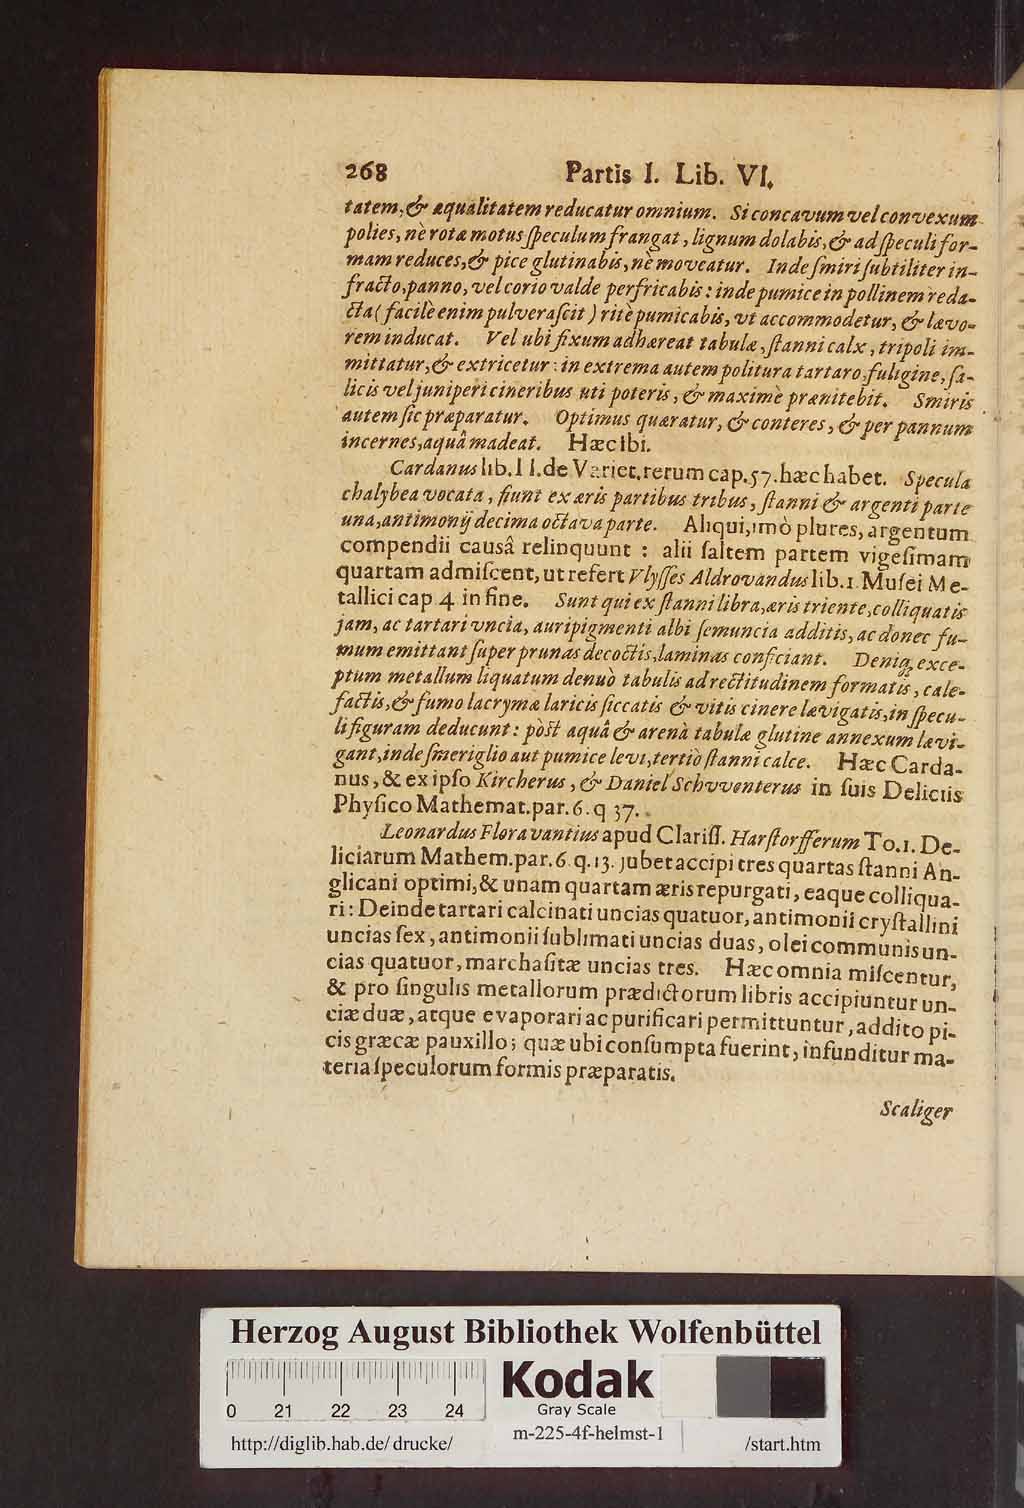 268 Partis I. Lib. VI.
tatem, & æqualitatem reducatur omnium. Si concavum vel convexum
polies, nè rotæ motus ſpeculum frangat, lignum dolabis, & ad ſpeculi for-
mam reduces, & pice glutinabis, nè moveatur. Inde ſmiri ſubtiliter in-
fracto, panno, vel corio valde perfricabis: inde pumice in pollinem reda-
cta (facilè enim pulveraſcit) ritè pumicabis, vt accommodetur, & lævo-
rem inducat. Vel ubi fixum adhæreat tabulæ, ſtanni calx, tripoli im-
mittatur, & extricetur: in extrema autem politura tartaro, fuligine, ſa-
licis vel juniperi cineribus uti poteris, & maximè prænitebit. Smiris
autem ſic præparatur. Optimus quæratur, & conteres, & per pannum
incernes, aquâ madeat. Hæc Ibi.
Cardanus lib. II. de Variet. rerum cap. 57. hæc habet. Specula
chalybea vocata, fiunt ex æris partibus tribus, ſtanni & argenti parte
una, antimonij decima octava parte. Aliqui, imò plures, argentum
compendii causâ relinquunt: alii ſaltem partem vigeſimam
quartam admiſcent, ut refert Vlyſſes Aldrovandus lib. 1. Muſei Me-
tallici cap 4. in fine. Sunt qui ex ſtanni libra, æris triente, colliquatis
jam, ac tartari vncia, auripigmenti albi ſemuncia additis, ac donec fu-
mum emittant ſuper prunas decoctis, laminas conficiant. Deniq; exce-
ptum metallum liquatum denuò tabulis ad rectitudinem formatis, cale-
factis, & fumo lacrymæ laricis ſiccatis & vitis cinere lævigatis, in ſpecu-
li figuram deducunt: pòſt aquâ & arenâ tabulæ glutine annexum lævi-
gant, inde ſmeriglio aut pumice levi, tertiò ſtanni calce. Hæc Carda-
nus, & ex ipſo Kircherus, & Daniel Schvventerus in ſuis Deliciis
Phyſico Mathemat. par. 6. q 37.
Leonardus Floravantius apud Clariſſ. Harſtorfferum To. 1. De-
liciarum Mathem. par. 6. q. 13. jubet accipi tres quartas ſtanni An-
glicani optimi, & unam quartam æris repurgati, eaque colliqua-
ri: Deinde tartari calcinati uncias quatuor, antimonii cryſtallini
uncias ſex, antimonii ſublimati uncias duas, olei communis un-
cias quatuor, marchaſitæ uncias tres. Hæc omnia miſcentur,
& pro ſingulis metallorum prædictorum libris accipiuntur un-
ciæ duæ, atque evaporari ac purificari permittuntur, addito pi-
cis græcæ pauxillo; quæ ubi conſumpta fuerint, infunditur ma-
teria ſpeculorum formis præparatis.
Scaliger
Herzog August Bibliothek Wolfenbüttel
0 21 22 23 24
Kodak
Gray Scale
http://diglib.hab.de/drucke/ m-225-4f-helmst-1 /start.htm